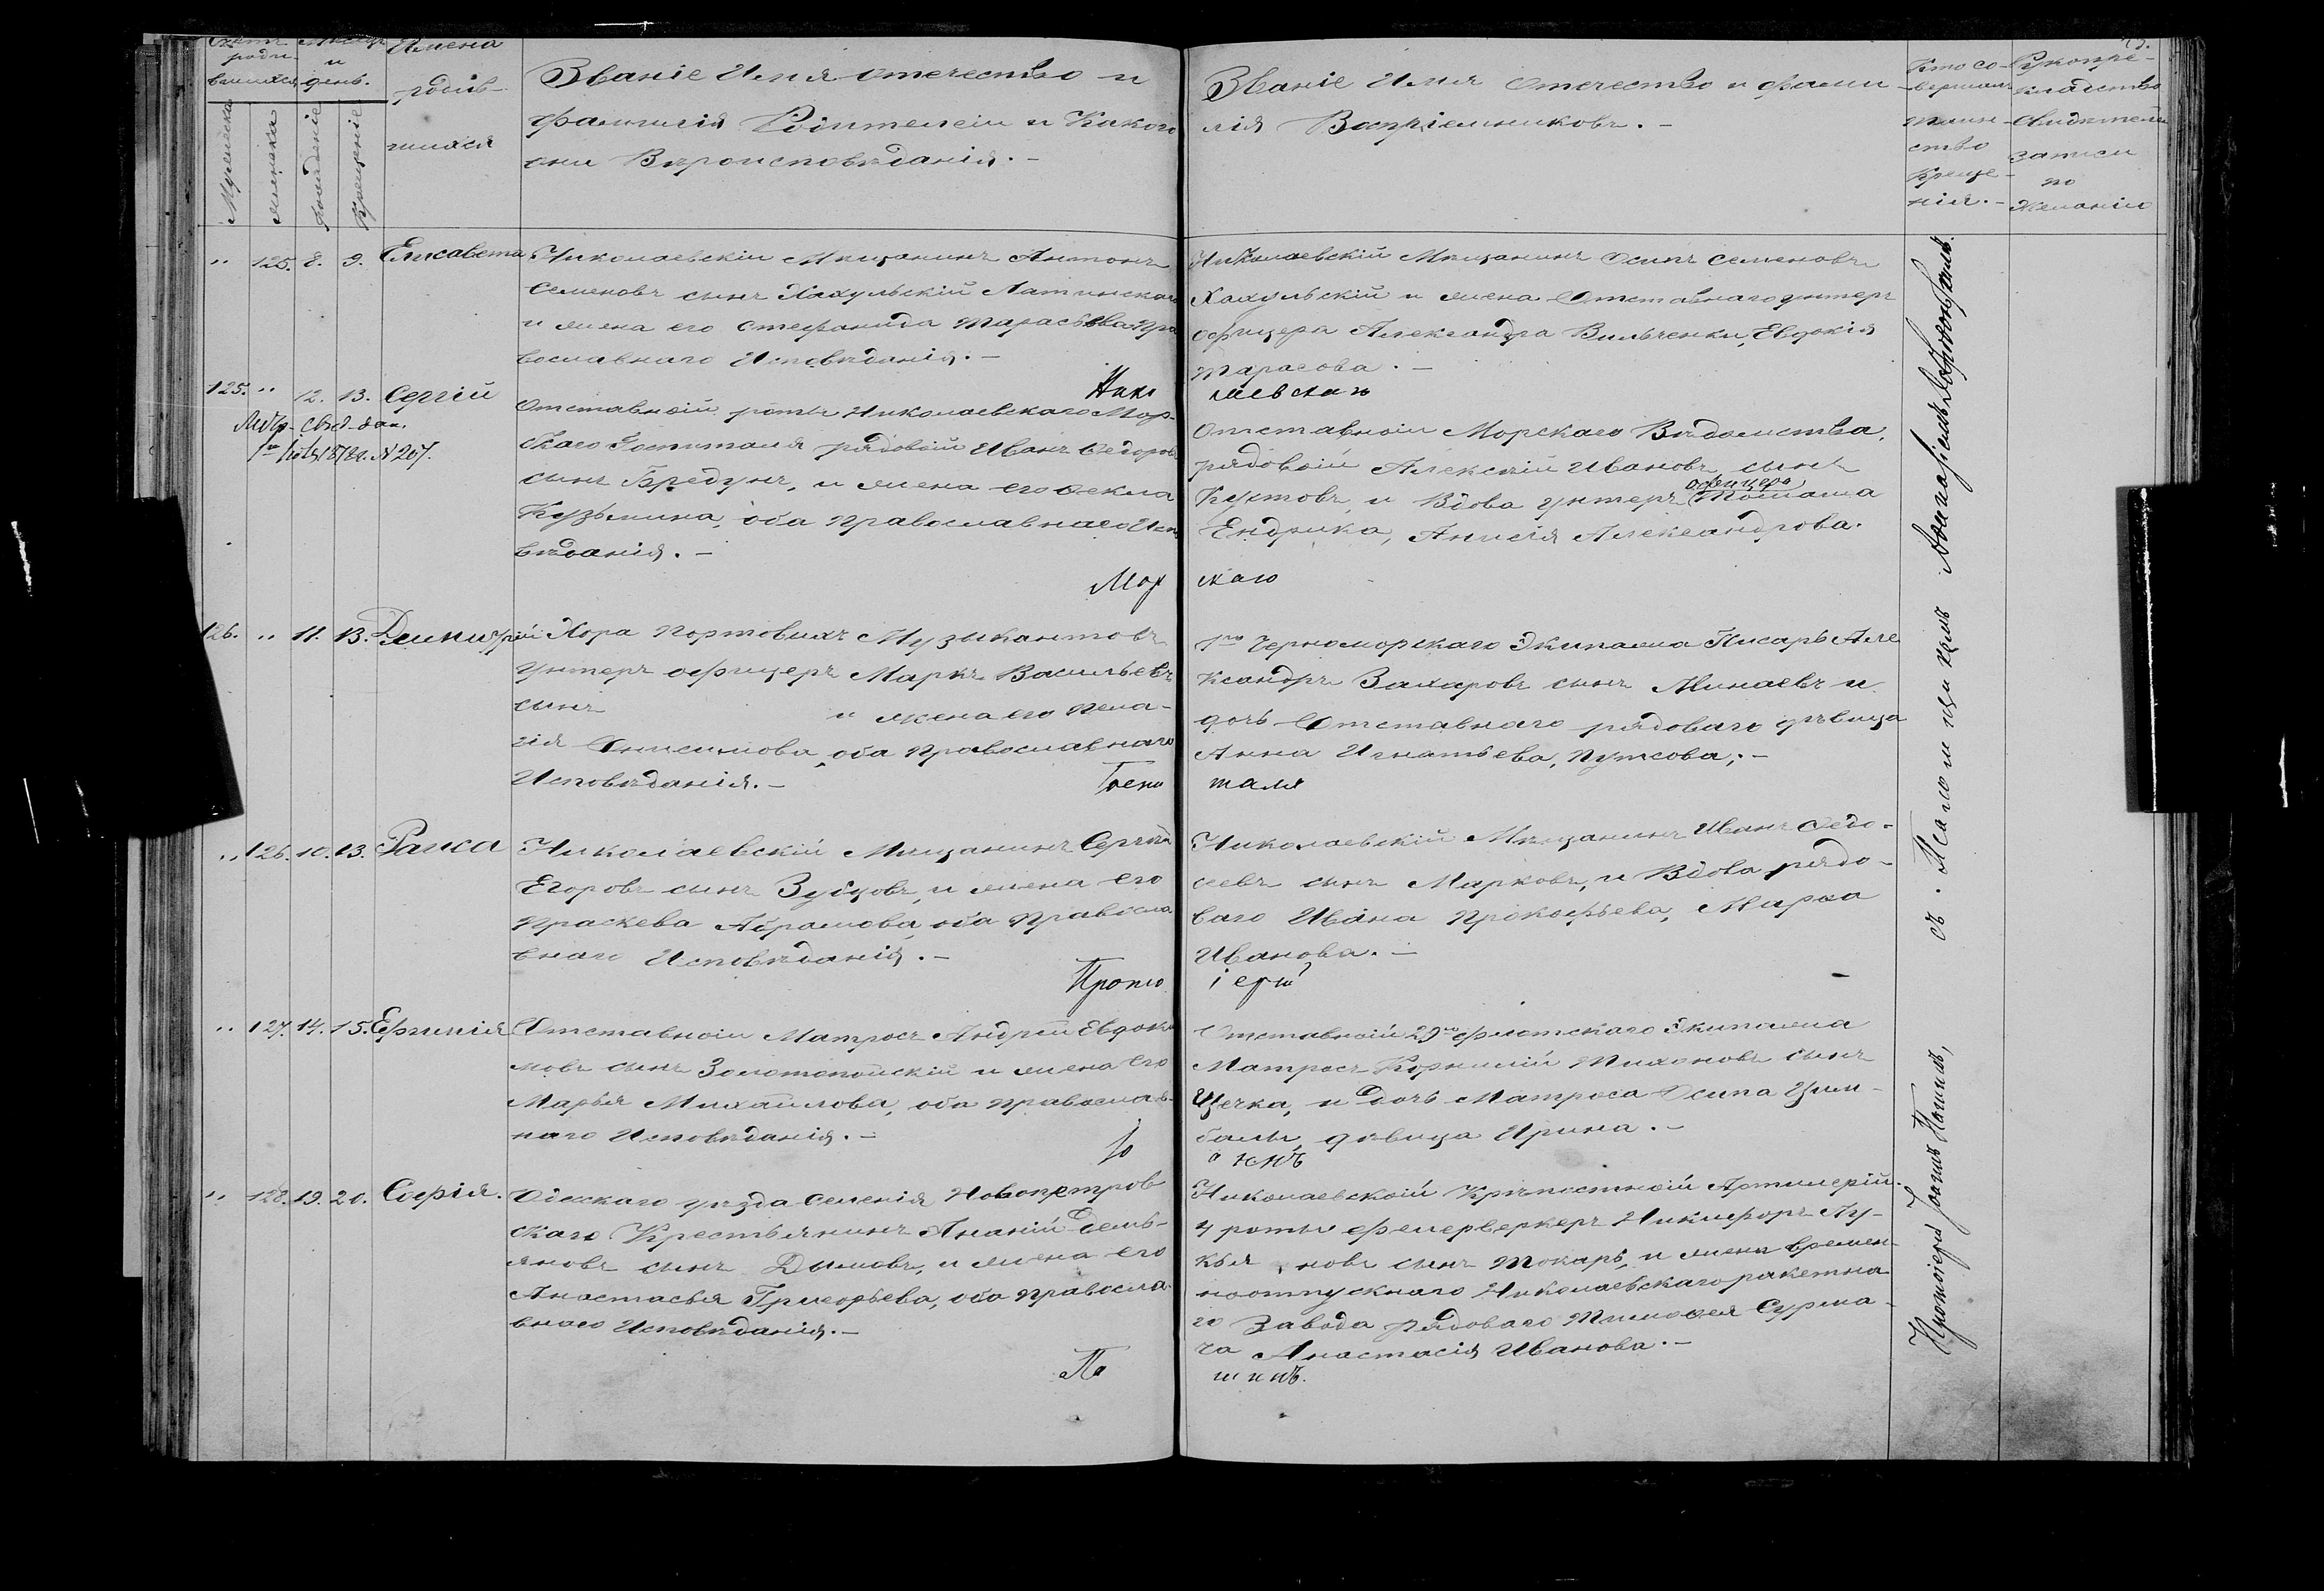 Счетъ родившихся
Мужеска
женска
Месяцъ и день.
рожденіе
Крещеніе
Имена
родив-
шихся
Званіе Имя отечество и
фамилія Родителей и Какого
они Вѣроисповѣданія.-
Званіе Имя Отечество и фами
лія Воспріемниковъ.-
Кто со-
вершалъ
таин-
ство
креще-
нія.-
Рукопри-
кладство
свидѣтелей
записи
по
желанію
" 125. 8. 9. Елисавета
Николаевскій Мѣщанинъ Антонъ
Семеновъ сынъ Хахульскій Латинскаго
и жена его Стефанида Тарасьева Пра
вославнаго Исповѣданія.-
Николаевскій Мѣщанинъ Осипъ Семеновъ
Хахульскій и жена Отставнаго унтеръ
офицера Александра Вильченки, Евдокія
Тарасова.-
Нико
лаевскаго
125. " 12. 13. Сергій
Метр. свид. дан.
1878 г. № 207.
Отставной роты Николаевскаго Мор-
скаго Госпиталя рядовой Иванъ Ѳедоровъ
сынъ Бредунъ, и жена его Ѳекла
Кузьмина, оба Православнаго Испо
вѣданія.-
Отставной Морскаго Вѣдомства,
рядовой Алексѣй Ивановъ сынъ
Кустовъ, и Вдова унтеръ офицера Томаша
Ендрика, Анисія Александрова.
Мор
скаго
126. " 11. 13. Димитрій
Хора портовыхъ Музыкантовъ
унтеръ офицеръ Маркъ Васильевъ
сынъ и жена его Пела-
гія Онисимова, оба Православнаго
Исповѣданія.-
1го Черноморскаго Экипажа Писарь Але
ксандръ Захаровъ сынъ Минаевъ и
дочь Отставнаго рядоваго дѣвица
Анна Игнатьева, Путсова;-
Госпи
таля
" 126. 10. 13. Раиса
Николаевскій Мѣщанинъ Сергѣй
Егоровъ сынъ Зубцовъ, и жена его
Праскева Абрамова, оба Правосла
внаго Исповѣданія.-
Николаевскій Мѣщанинъ Иванъ Ѳедо-
сеевъ сынъ Марковъ, и Вдова рядо-
ваго Ивана Прокофьева, Марѳа
Иванова.-
Прото
іерей
" 127. 14. 15. Ефимія
Отставной Матросъ Андрей Евдоки
мовъ сынъ Золотопольскій и жена его
Марья Михайлова, оба православ-
наго Исповѣданія.-
Отставной 29го флотскаго Экипажа
Матросъ Корнилій Тихоновъ сынъ
Щечка, и дочь Матроса Осипа Цим-
балы, дѣвица Ирина.-
Іо
аннъ
" 128. 19. 20. Софія.
Одескаго уѣзда Селенія Новопетров
скаго Крестьянинъ Ананій Демь-
яновъ сынъ Дымовъ, и жена его
Анастасья Григорьева, оба правосла-
внаго Исповѣданія.-
Николаевской Крѣпостной Артилеріи
4 роты фейерверкеръ Никифоръ Лу-
кьяновъ сынъ Токарь, и жена времен-
ноотпускнаго Николаевскаго ракетна
го Завода рядоваго Тимоѳея Сурма-
ча Анастасія Иванова.-
По
шинъ.
Протоіерей Іоаннъ Пошинъ,
съ Псаломщикомъ